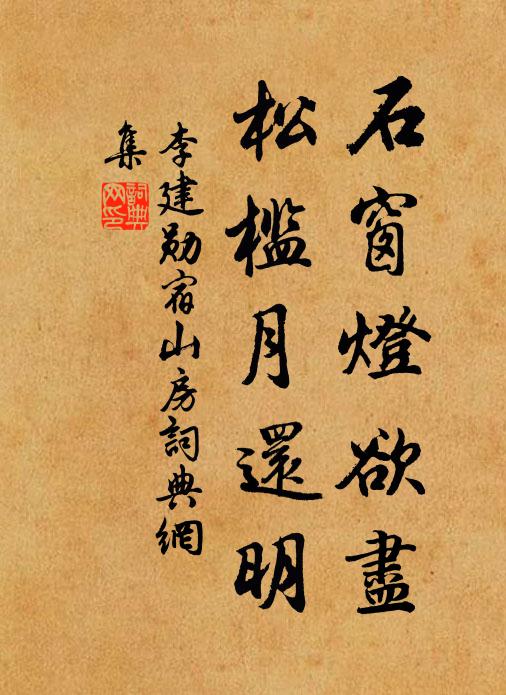 石窗燈欲盡
松檻月還明
李建勛宿山房詞典網
集
詞典網印